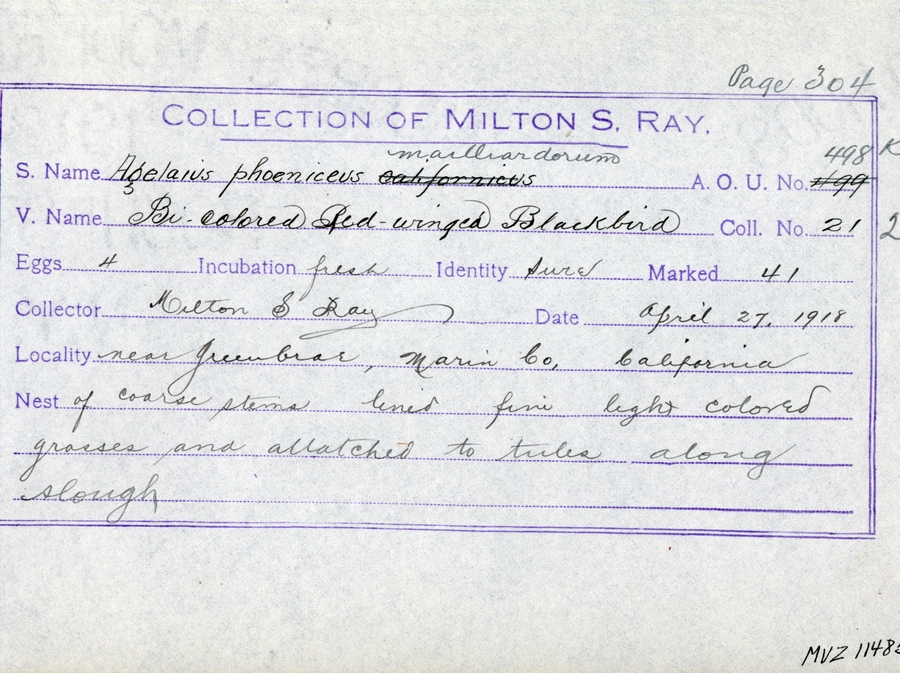 Page 304
COLLECTION OF MILTON S. RAY.
mailliardorum
498 K
S. Name Agelaius phoeniceus californicus A. O. U. No. 499
V. Name Bi-colored Red-winged Blackbird Coll. No. 21 2
Eggs 4 Incubation fresh Identity sure Marked 41
Collector Milton S Ray Date April 27, 1918
Locality near Greenbrae, Marin Co, California
Nest of coarse stems lined fine light colored
grasses and attatched to tules along
slough
MVZ 1148